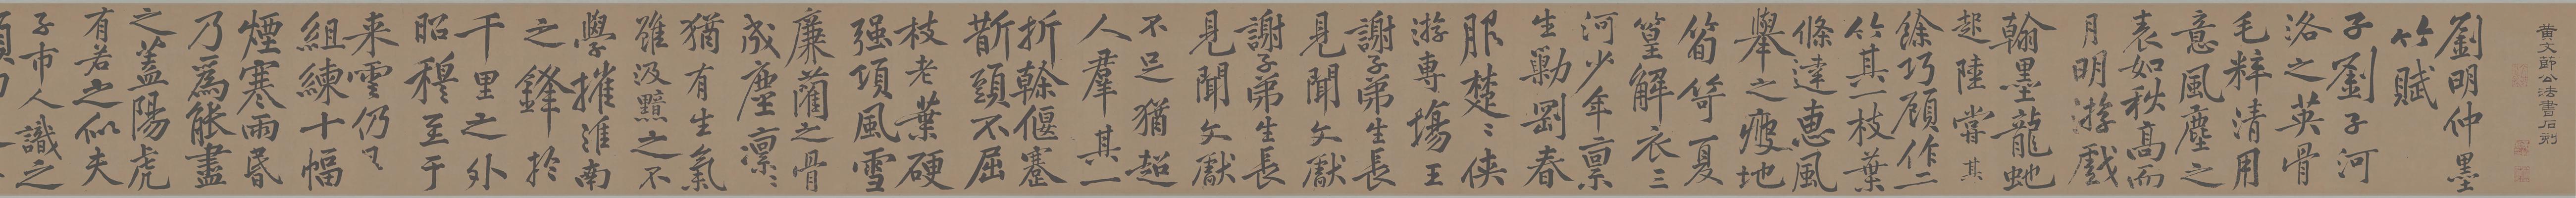 黄文節公法書石刻
劉明仲墨
竹賦
子劉子河
洛之英骨
毛粹清用
意風塵之
表如秋髙而
月明游戲
翰墨龍虵
起陸嘗其
餘巧顧作二
竹其一枝葉
條達恵風
舉之瘦地
筍笴夏
篁解衣三
河少年禀
生勦剛春
服楚〻俠
游専場王
謝子弟生長
見聞文獻
謝子弟生長
見聞文獻
不足猶超
人羣其一
折榦偃蹇
斮頭不屈
枝老葉硬
强項風雪
廉藺之骨
成塵凛〻
猶有生氣
雖汲黯之不
學摧淮南
之鋒於
千里之外
昭穆至于
来雲仍
組練十幅
煙寒雨昏
乃爲能盡
之蓋陽虎
有若之似夫
子市人識之